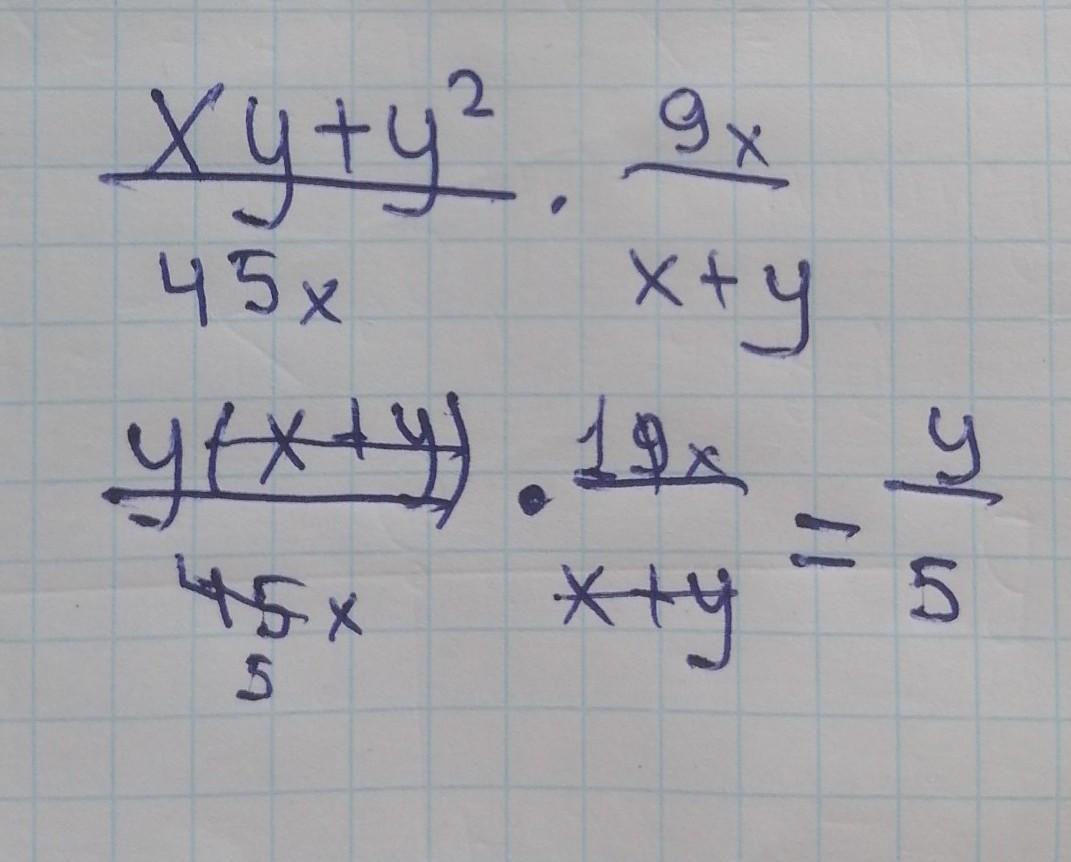 xy+y²/45x · 9x/x+y
y(x+y)/45x 5 · 1 9x/x+y = y/5